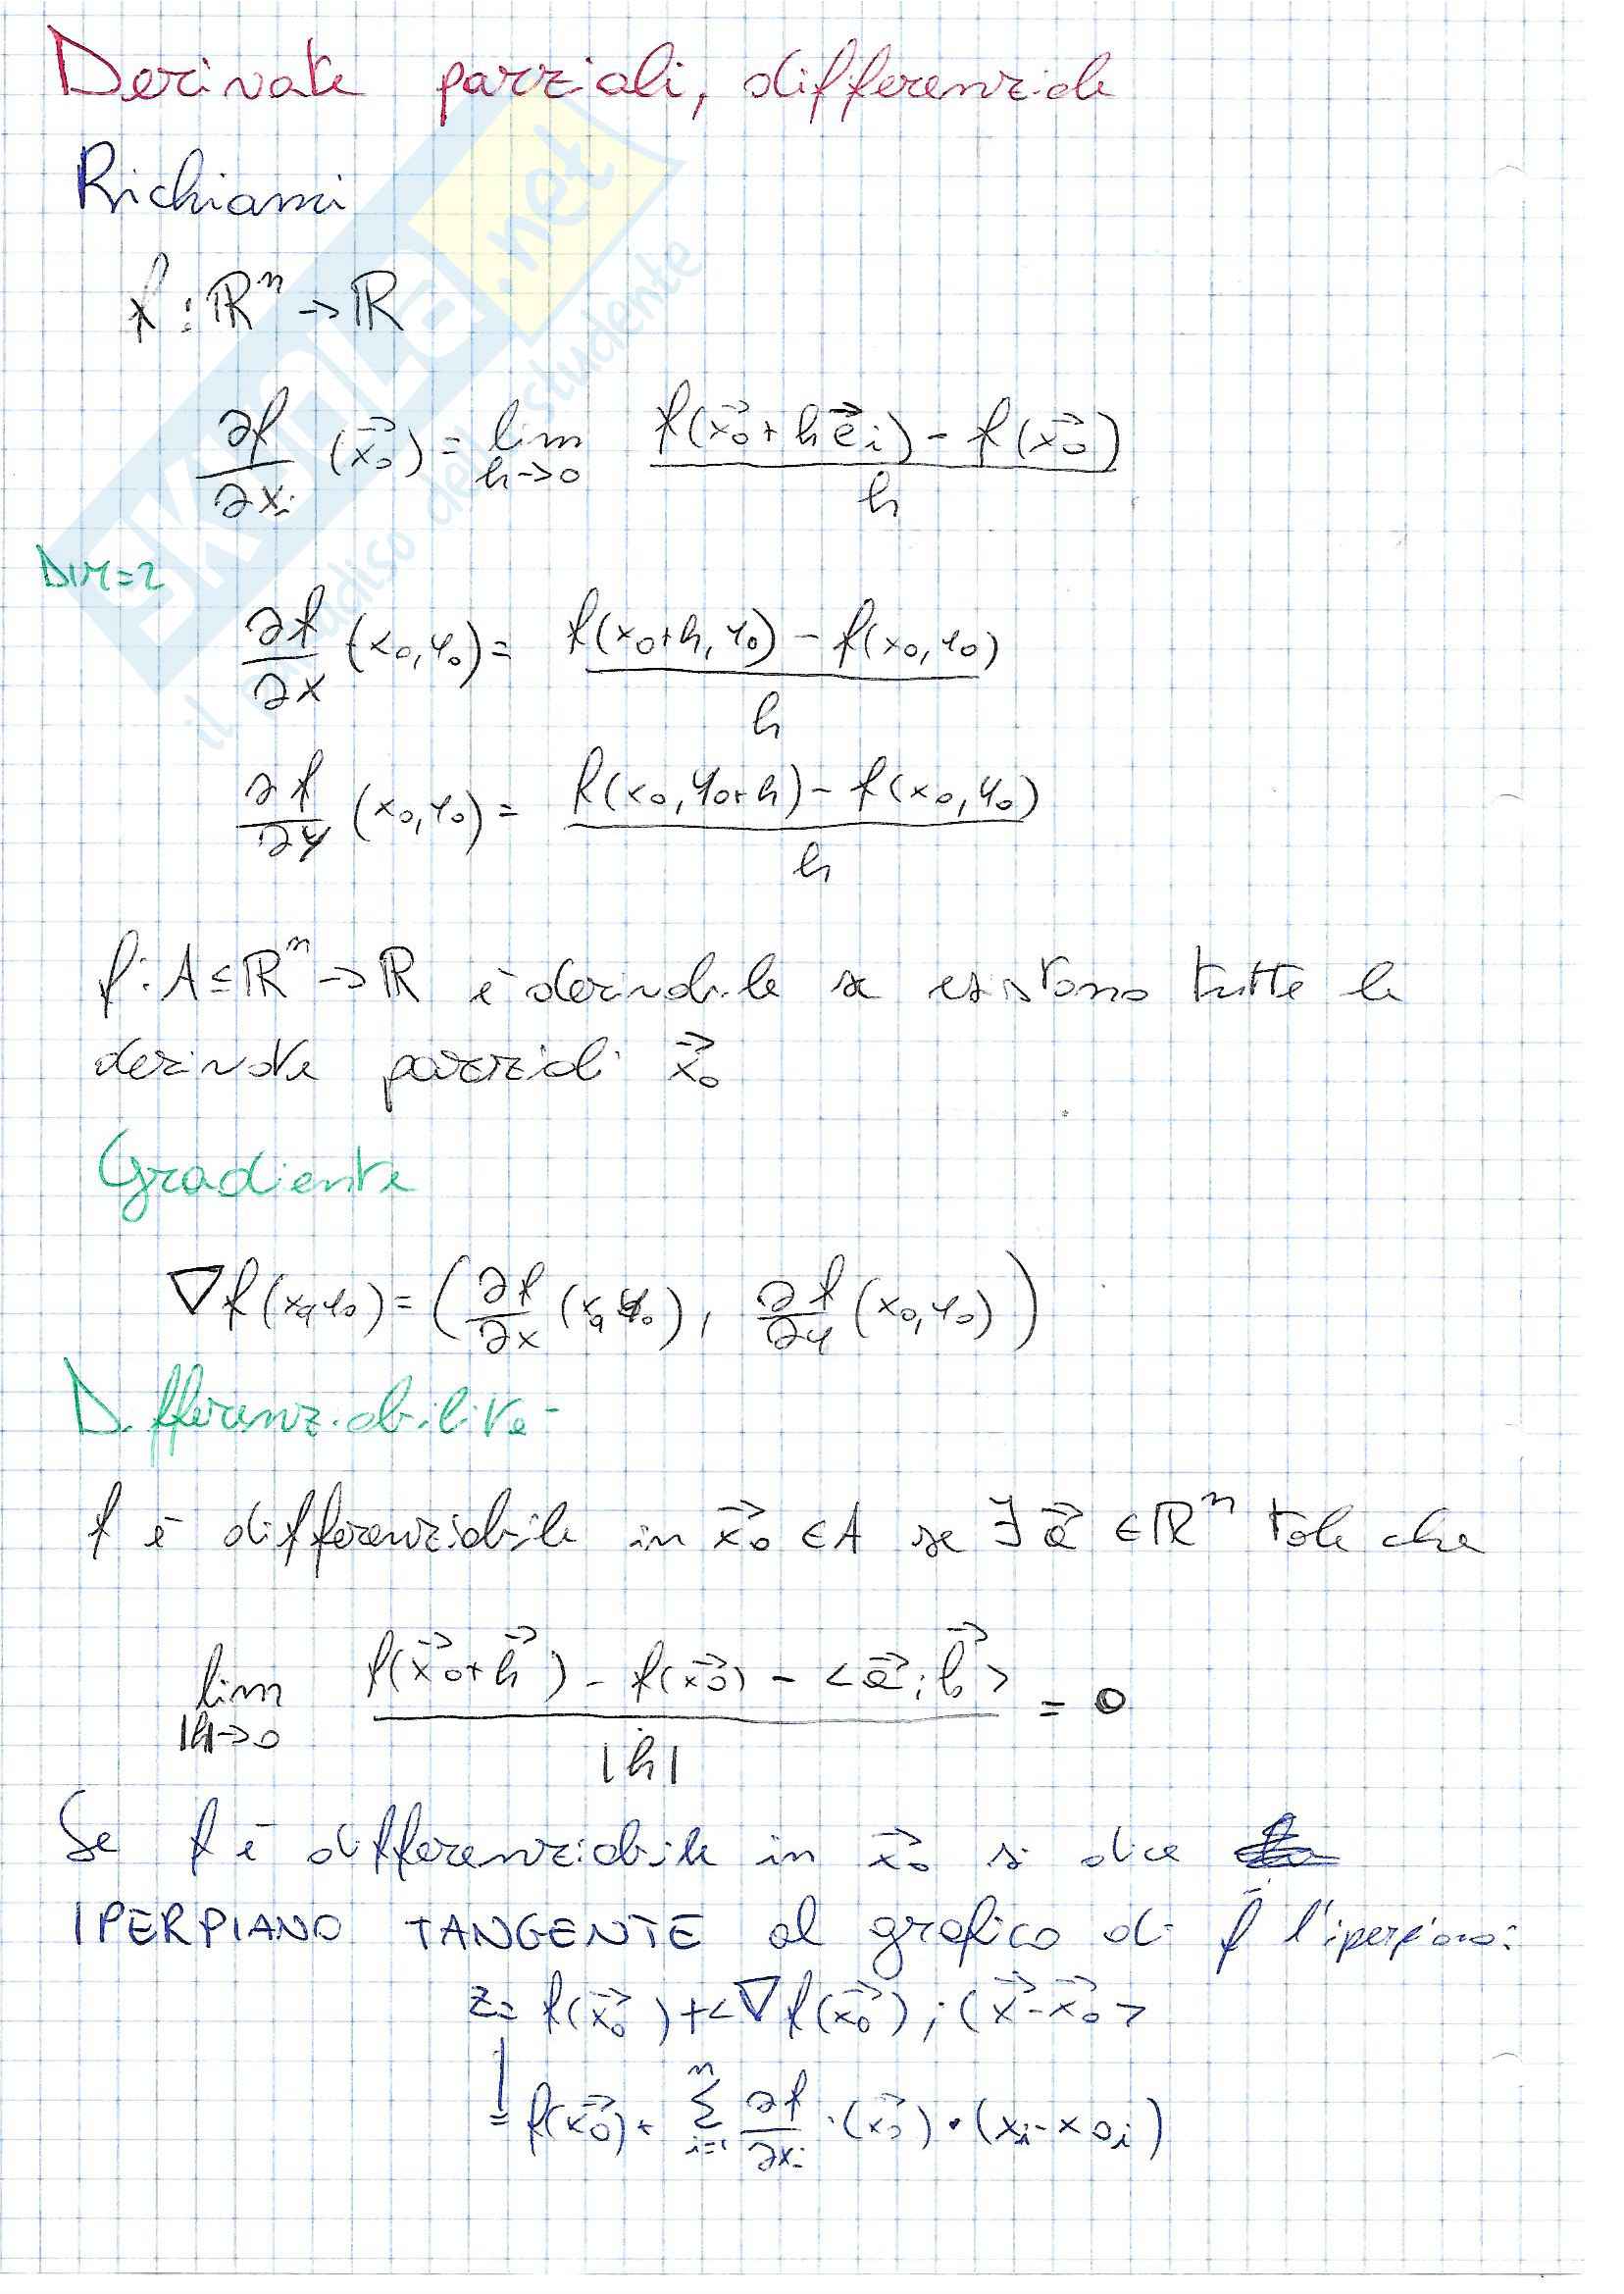 Derivate parziali, differenziale
Richiami
f: ℝⁿ → ℝ
∂f/∂xᵢ (x⃗₀) = lim h→0 (f(x⃗₀ + h e⃗ᵢ) - f(x⃗₀)) / h
DIM=2
∂f/∂x (x₀, y₀) = (f(x₀+h, y₀) - f(x₀, y₀)) / h
∂f/∂y (x₀, y₀) = (f(x₀, y₀+h) - f(x₀, y₀)) / h
f: A ⊆ ℝⁿ → ℝ è derivabile se esistono tutte le
derivate parziali x⃗₀
Gradiente
∇f(x₀, y₀) = (∂f/∂x (x₀, y₀), ∂f/∂y (x₀, y₀))
Differenziabilità
f è differenziabile in x⃗₀ ∈ A se ∃ a⃗ ∈ ℝⁿ tale che
lim |h|→0 (f(x⃗₀ + h⃗) - f(x⃗₀) - <a⃗; h⃗>) / |h| = 0
Se f è differenziabile in x⃗₀ si dice
IPERPIANO TANGENTE al grafico di f l'iperpiano:
z = f(x⃗₀) + <∇f(x⃗₀); (x⃗ - x⃗₀>
= f(x⃗₀) + Σ i=1 n ∂f/∂xᵢ · (x⃗₀) · (xᵢ - x₀ᵢ)
skuola.net
il paradiso dello studente